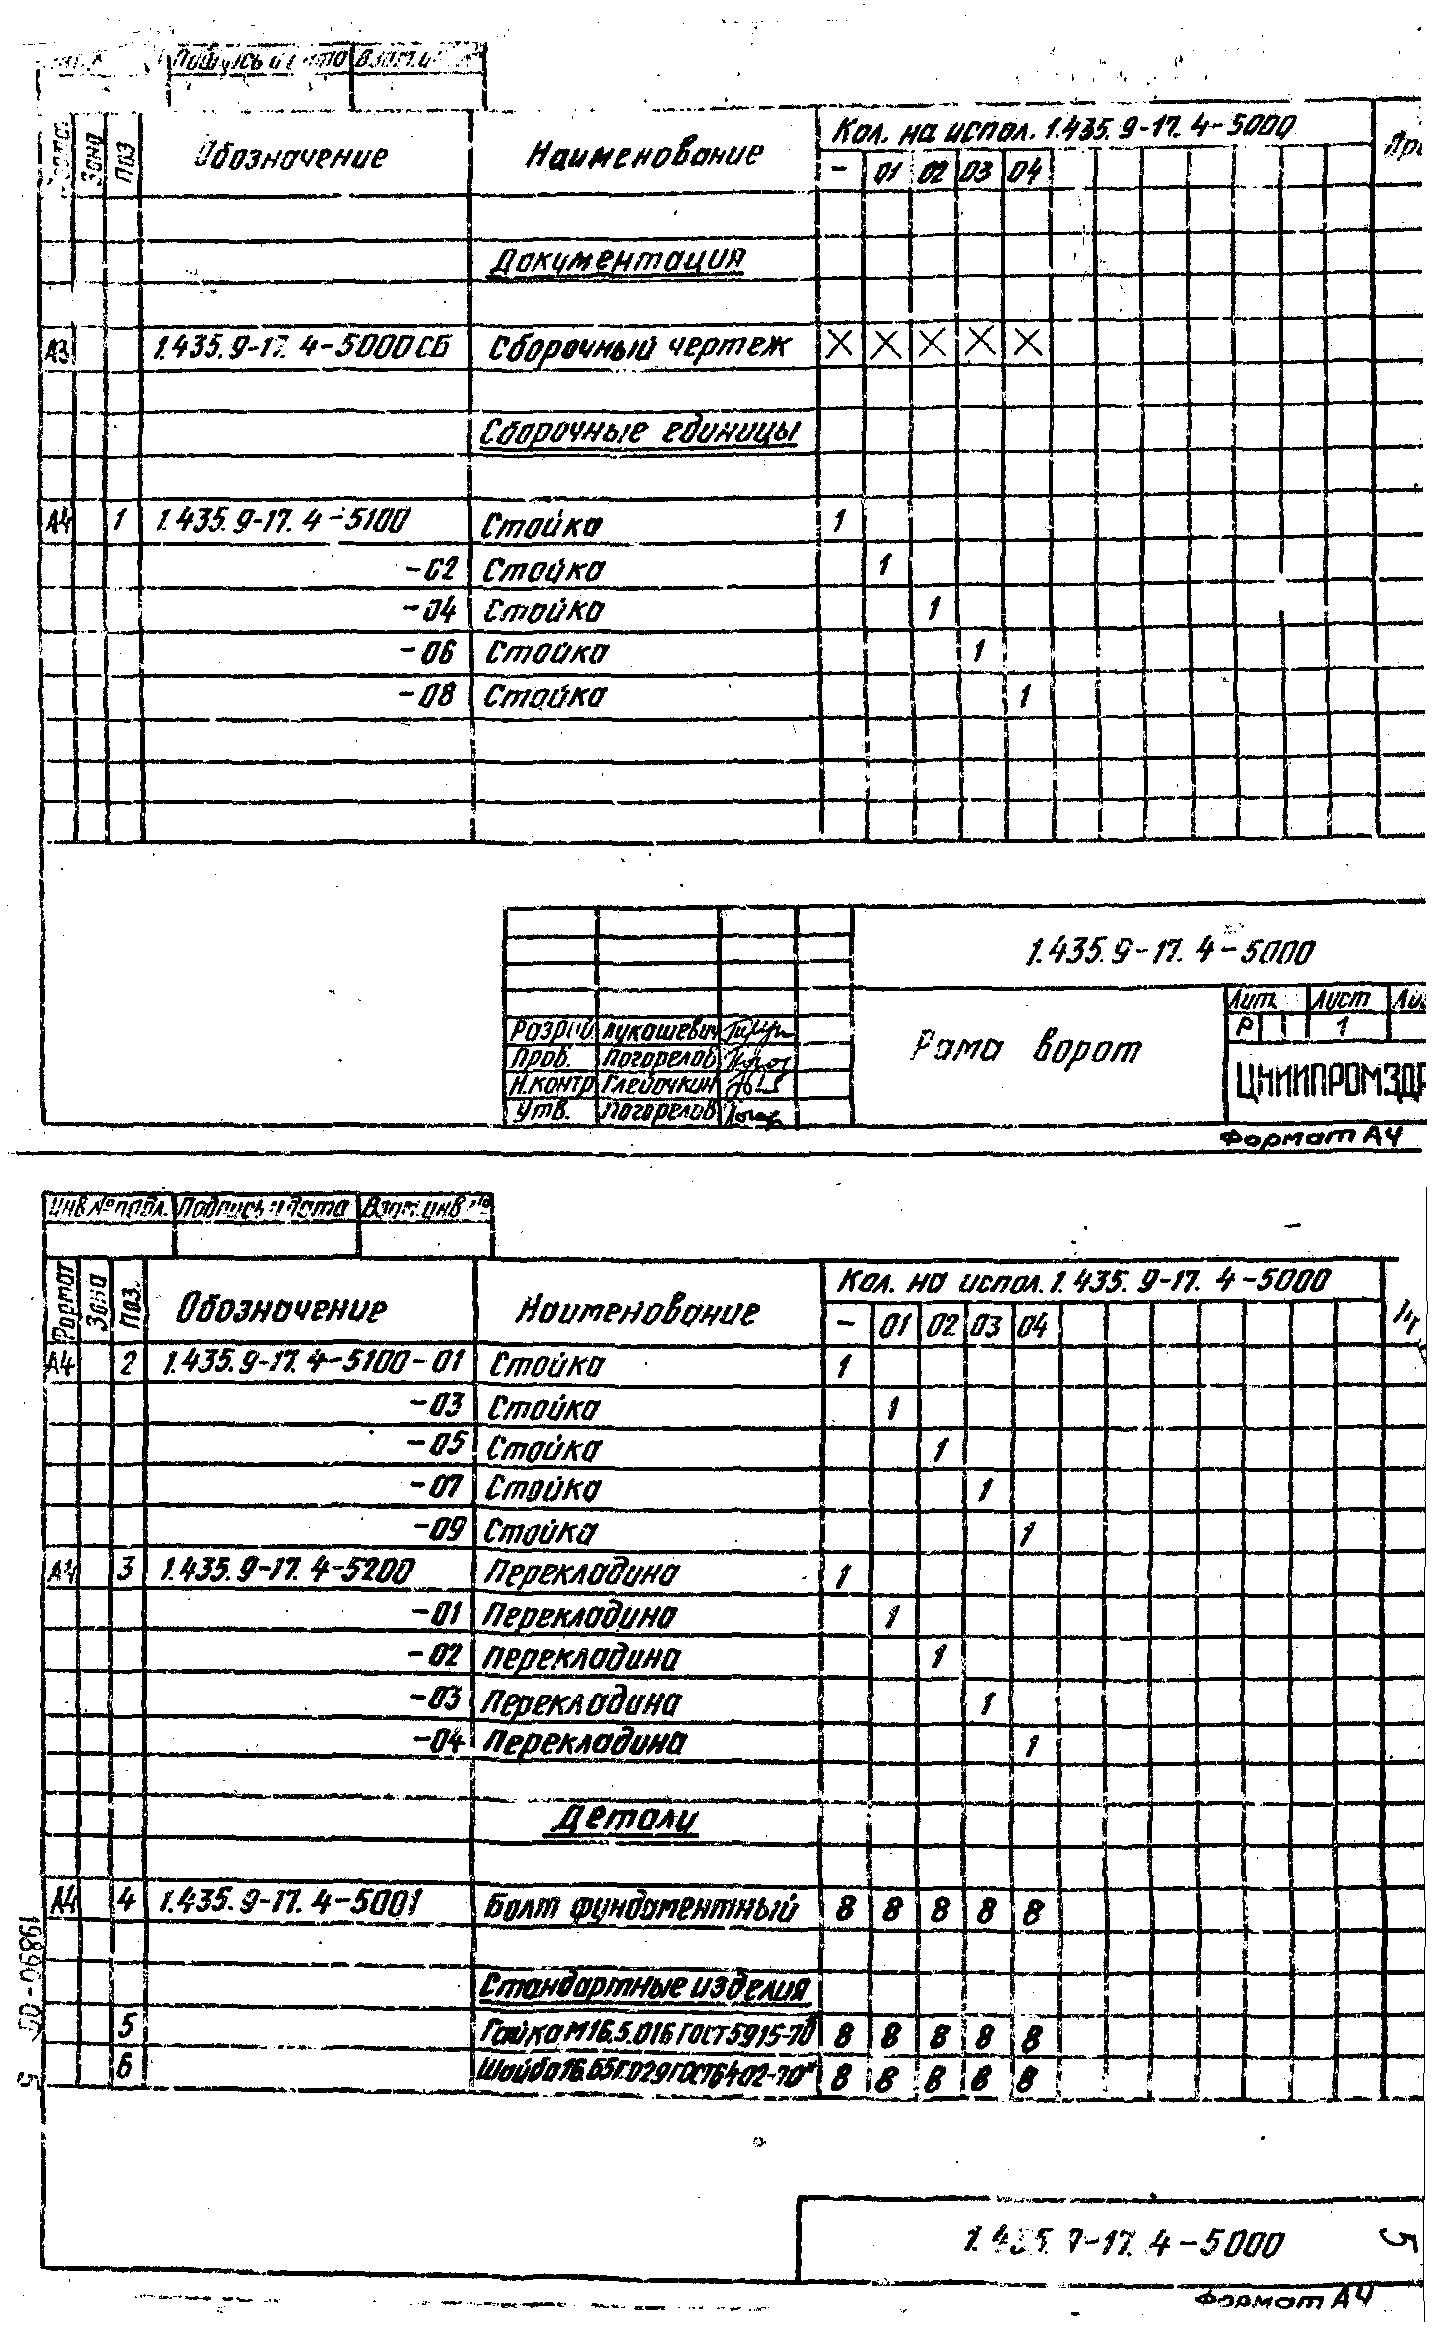 Подпись и дата Взам. инв. №
Зона Поз Обозначение Наименование Кол. на испол. 1.435.9-17.4-5000
- 01 02 03 04
Документация
А3 1.435.9-17.4-5000СБ Сборочный чертеж X X X X X
Сборочные единицы
А4 1 1.435.9-17.4-5100 Стойка 1
-02 Стойка 1
-04 Стойка 1
-06 Стойка 1
-08 Стойка 1
1.435.9-17.4-5000
Рама ворот
Лит. Лист
Р 1
Разраб. Лукашевич
Пров. Погорелов
Н.контр Глейочкин
Утв. Погорелов
ЦНИИПРОМЗД
Формат А4
Инв № подл. Подпись и дата Взам. инв №
Формат Зона Поз. Обозначение Наименование Кол. на испол. 1.435.9-17.4-5000
- 01 02 03 04
А4 2 1.435.9-17.4-5100-01 Стойка 1
-03 Стойка 1
-05 Стойка 1
-07 Стойка 1
-09 Стойка 1
А4 3 1.435.9-17.4-5200 Перекладина 1
-01 Перекладина 1
-02 Перекладина 1
-03 Перекладина 1
-04 Перекладина 1
Детали
А4 4 1.435.9-17.4-5001 Болт фундаментный 8 8 8 8 8
Стандартные изделия
5 Гайка М16.5.016 ГОСТ 5915-70 8 8 8 8 8
6 Шайба 16.65Г.029 ГОСТ 6402-70* 8 8 8 8 8
1.435.9-17.4-5000 5
Формат А4
19890-00 5